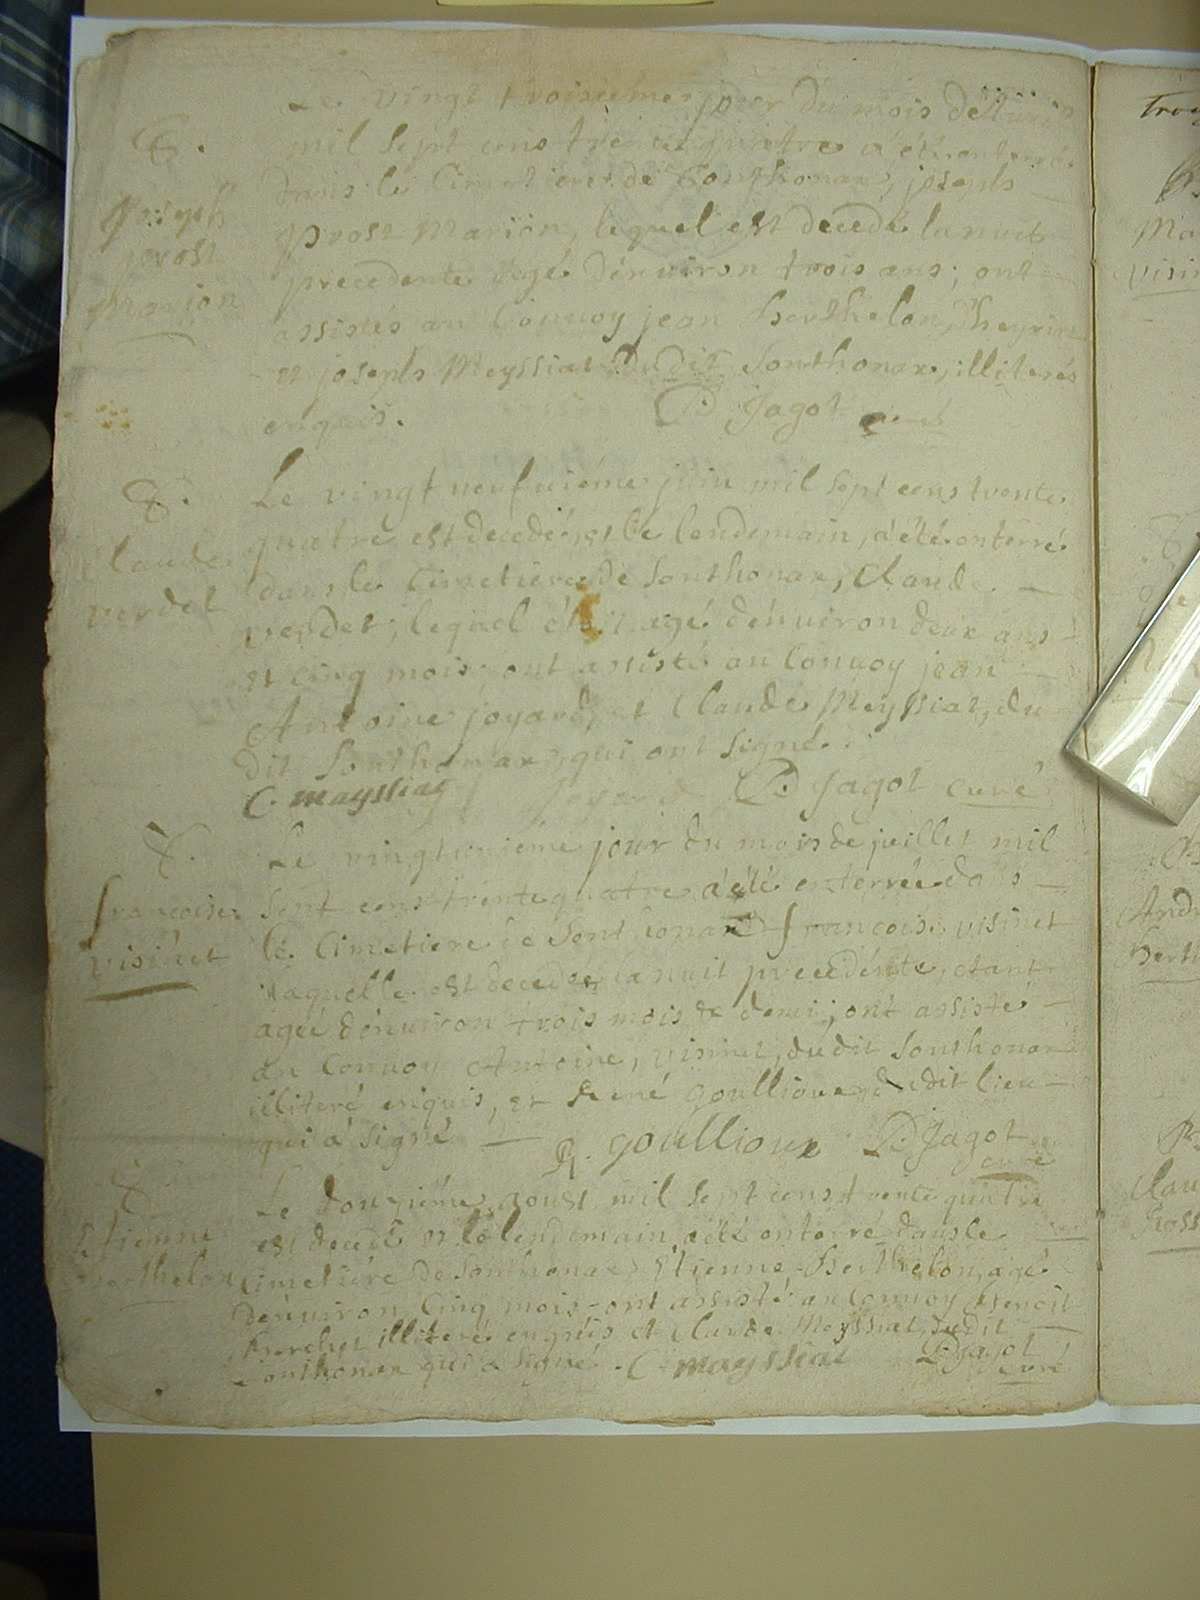 Le vingt troisieme jour du mois de juin
mil sept cens trente quatre a été enterré
S.
dans le Cimetiere de Sonthonax, joseph
Joseph
prost
Marion
prost Marion, lequel est decedé la nuit
precedente agé dénuiron trois ans; ont
assistés au Conuoy jean Berthelon,
et joseph Meyssiat dudit Sonthonax, illiterés
enquis. P. Jagot curé
S.
Claude
verdet
Le vingt neufuiéme juin mil sept cens trente
quatre est decedé, et le lendemain, a été enterré
dans le Cimetiere de Sonthonax, Claude
verdet; lequel étoit agé dénuiron deux ans
et cinq mois ont assisté au Conuoy jean
Antoine joyard, et Claude Meyssiat, du
dit Sonthonax, qui ont signé.
C. mayssiat Joyard P. Jagot curé
S.
francoise
visinet
Le vingt uniéme jour du mois de juillet mil
sept cens trente quatre a été enterrée dans
le Cimetiere de Sonthonax francoise visinet
laquelle est decedée la nuit precedente, etant
agée dénuiron trois mois & demi; ont assisté
au Conuoy Antoine, visinet, dudit Sonthonax
illiteré enquis, et René goullioux dudit lieu
qui a signé R. goullioux P. Jagot
curé
S
Etienne
Berthelon
Le douziéme aoust mil sept cens trente quatre
est decedé et le lendemain a été enterré dans le
Cimetiére de Sonthonax Etienne Berthelon, agé
dénuiron Cinq mois ont assisté au Conuoy Benoit
illiteré enquis et Claude Meyssiat, dudit
Sonthonax qui a signé. C. mayssiat P. Jagot
curé